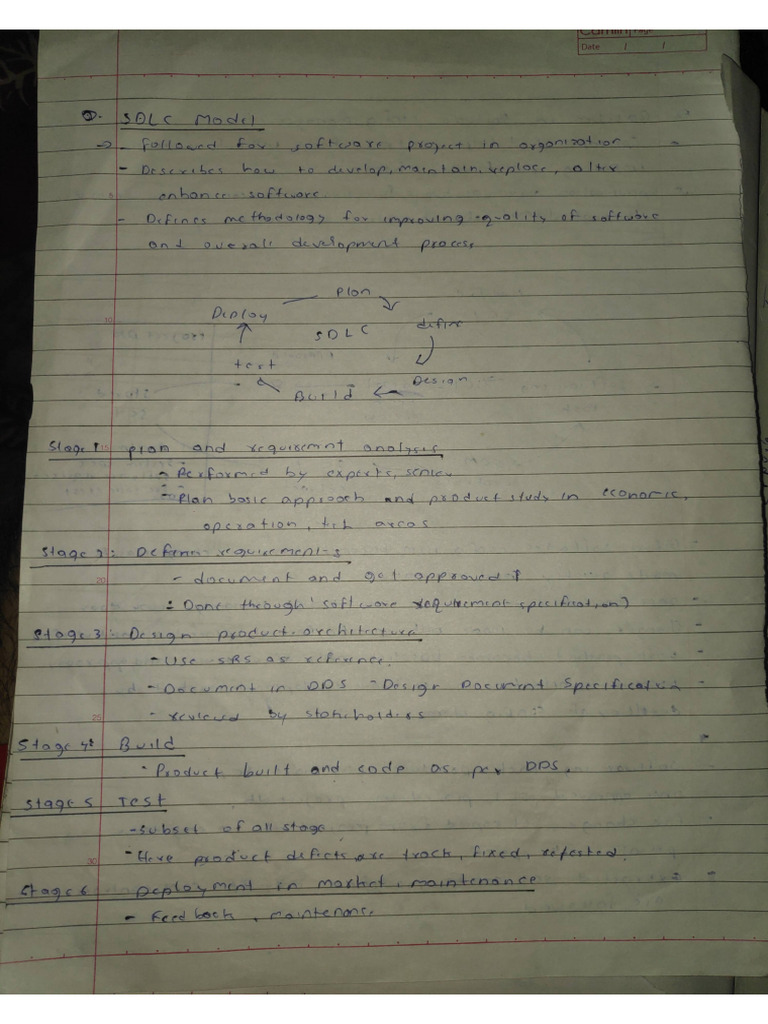 Camlin Page
Date / /
Q. SDLC Model
→ - Followed for software project in organization
- Describes how to develop, maintain, replase, alter
enhance software.
- Defines methodology for improving quality of software
and overall development process.
Plan
Deploy
SDLC
define
test
Design
Build
Stage 1: Plan and requirement analysis
- Performed by experts, senior
- Plan basic approach and product study in economic,
operation, tech areas
Stage 2: Define requirements
- document and get approved
- Done through 'software requirement specification)
Stage 3: Design product architecture
- Use SRS as reference.
- Document in DDS - Design Document Specification
- reviewed by stakeholders
Stage 4: Build
- Product built and code as per DDS.
Stage 5 Test
- Subset of all stage
- Here product defects are track, fixed, retested.
Stage 6 Deployment in market, maintenance
- Feedback, maintenance